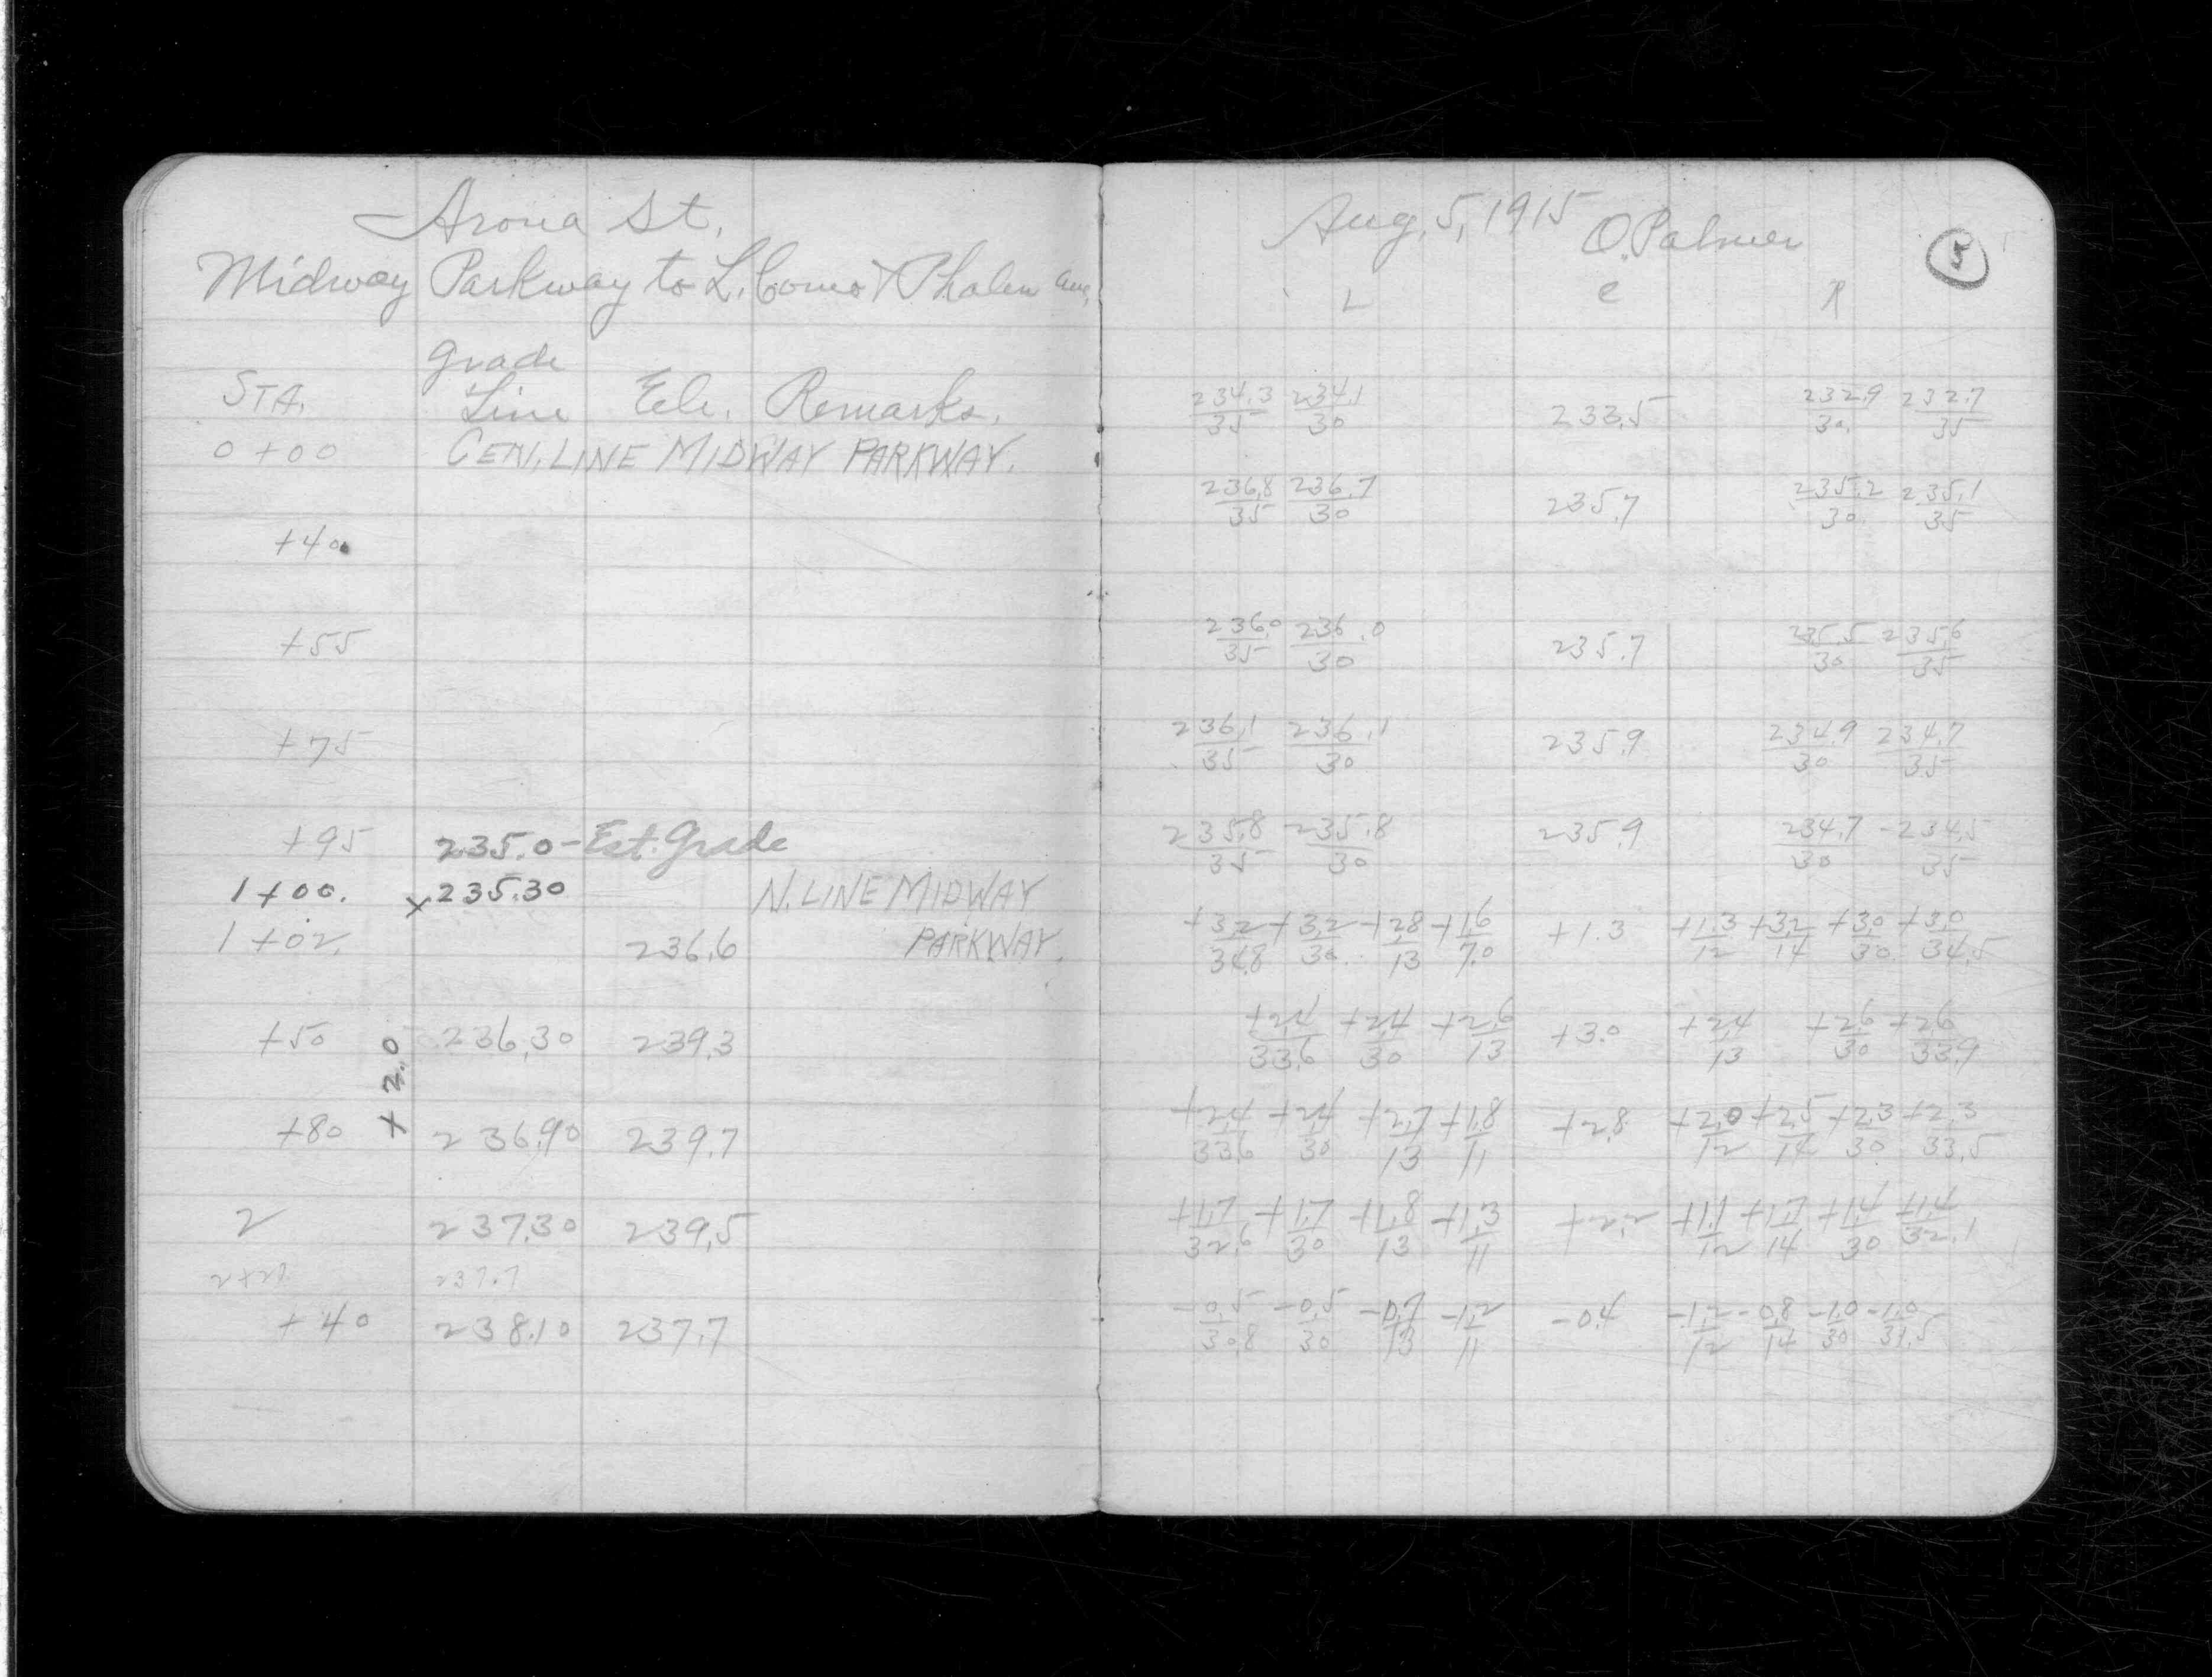 Arona St.
Midway Parkway to L. Como & Phalen ave.
Grade
STA. Line Ele. Remarks.
0+00 CEN. LINE MIDWAY PARKWAY.
+40
+55
+75
+95 235.0 - Est. Grade
1+00. x 235.30 N. LINE MIDWAY
1+02. 236.6 PARKWAY.
+50 236.30 239.3
+2.0
+80 236.90 239.7
2 237.30 239.5
237.7
+40 238.10 237.7
Aug. 5, 1915 O. Palmer 5
L C R
234.3/35 234.1/30 233.5 232.9/30. 232.7/35
236.8/35 236.7/30 235.7 235.2/30 235.1/35
236.0/35 236.0/30 235.7 235.5/30 235.6/35
236.1/35 236.1/30 235.9 234.9/30 234.7/35
235.8/35 235.8/30 235.9 234.7/30 234.5/35
+3.2/34.8 +3.2/30. +2.8/13 +1.6/7.0 +1.3 +1.3/12 +3.2/14 +3.0/30. +3.0/34.5
+2.4/33.6 +2.4/30 +2.6/13 +3.0 +2.4/13 +2.6/30 +2.6/33.9
+2.4/33.6 +2.4/30 +2.7/13 +1.8/11 +2.8 +2.0/12 +2.5/14 +2.3/30 +2.3/33.5
+1.7/32.6 +1.7/30 +1.8/13 +1.3/11 +2.2 +1.1/12 +1.7/14 +1.4/30 +1.4/32.1
-0.5/30.8 -0.5/30 -0.7/13 -1.2/11 -0.4 -1.2/12 -0.8/14 -1.0/30 -1.0/31.5